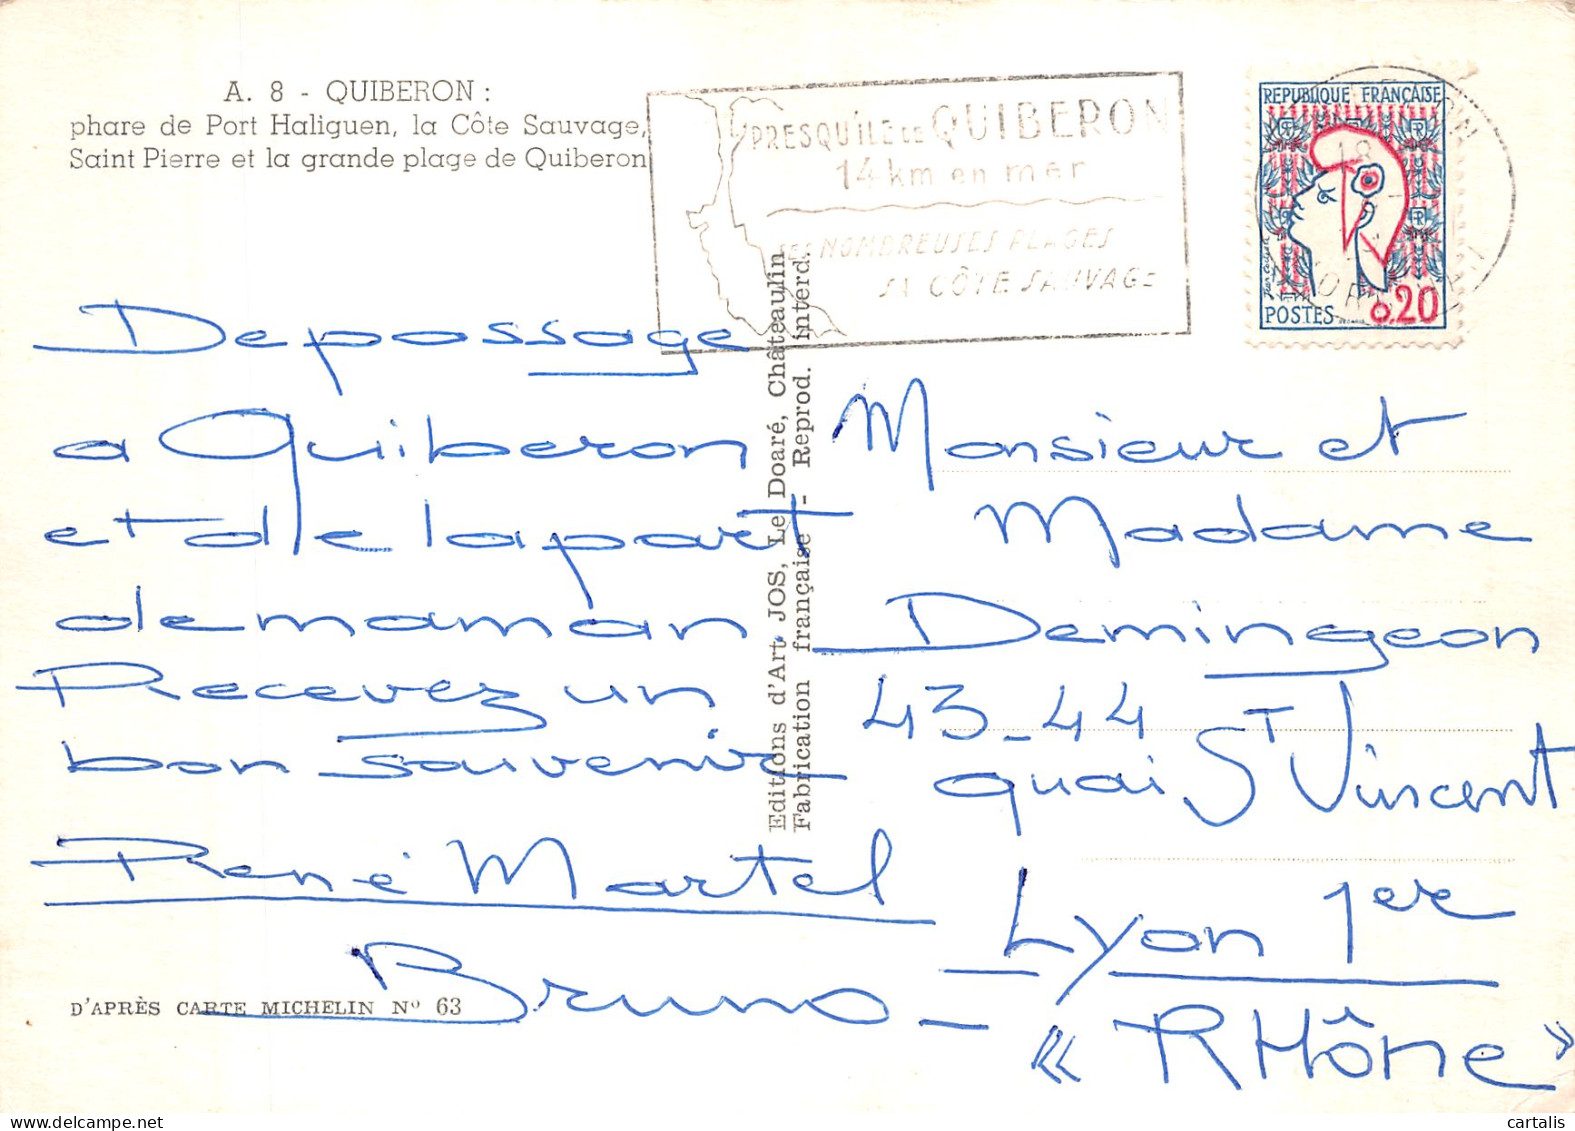 A. 8 - QUIBERON :
phare de Port Haliguen, la Côte Sauvage,
Saint Pierre et la grande plage de Quiberon
PRESQU'ILE DE QUIBERON
14 km en mer
SES NOMBREUSES PLAGES
SA CÔTE SAUVAGE
REPUBLIQUE FRANÇAISE
POSTES 0,20
De passage
a Quiberon
et de la part
de maman
Recevez un
bon souvenir
René Martel
Bruno
D'APRÈS CARTE MICHELIN Nº 63
Editions d'Art JOS, Le Doaré, Châteaulin
Fabrication française - Reprod. interd.
Monsieur et
Madame
Demingeon
43-44
quai St Vincent
Lyon 1er
- « RHône »
cartalis